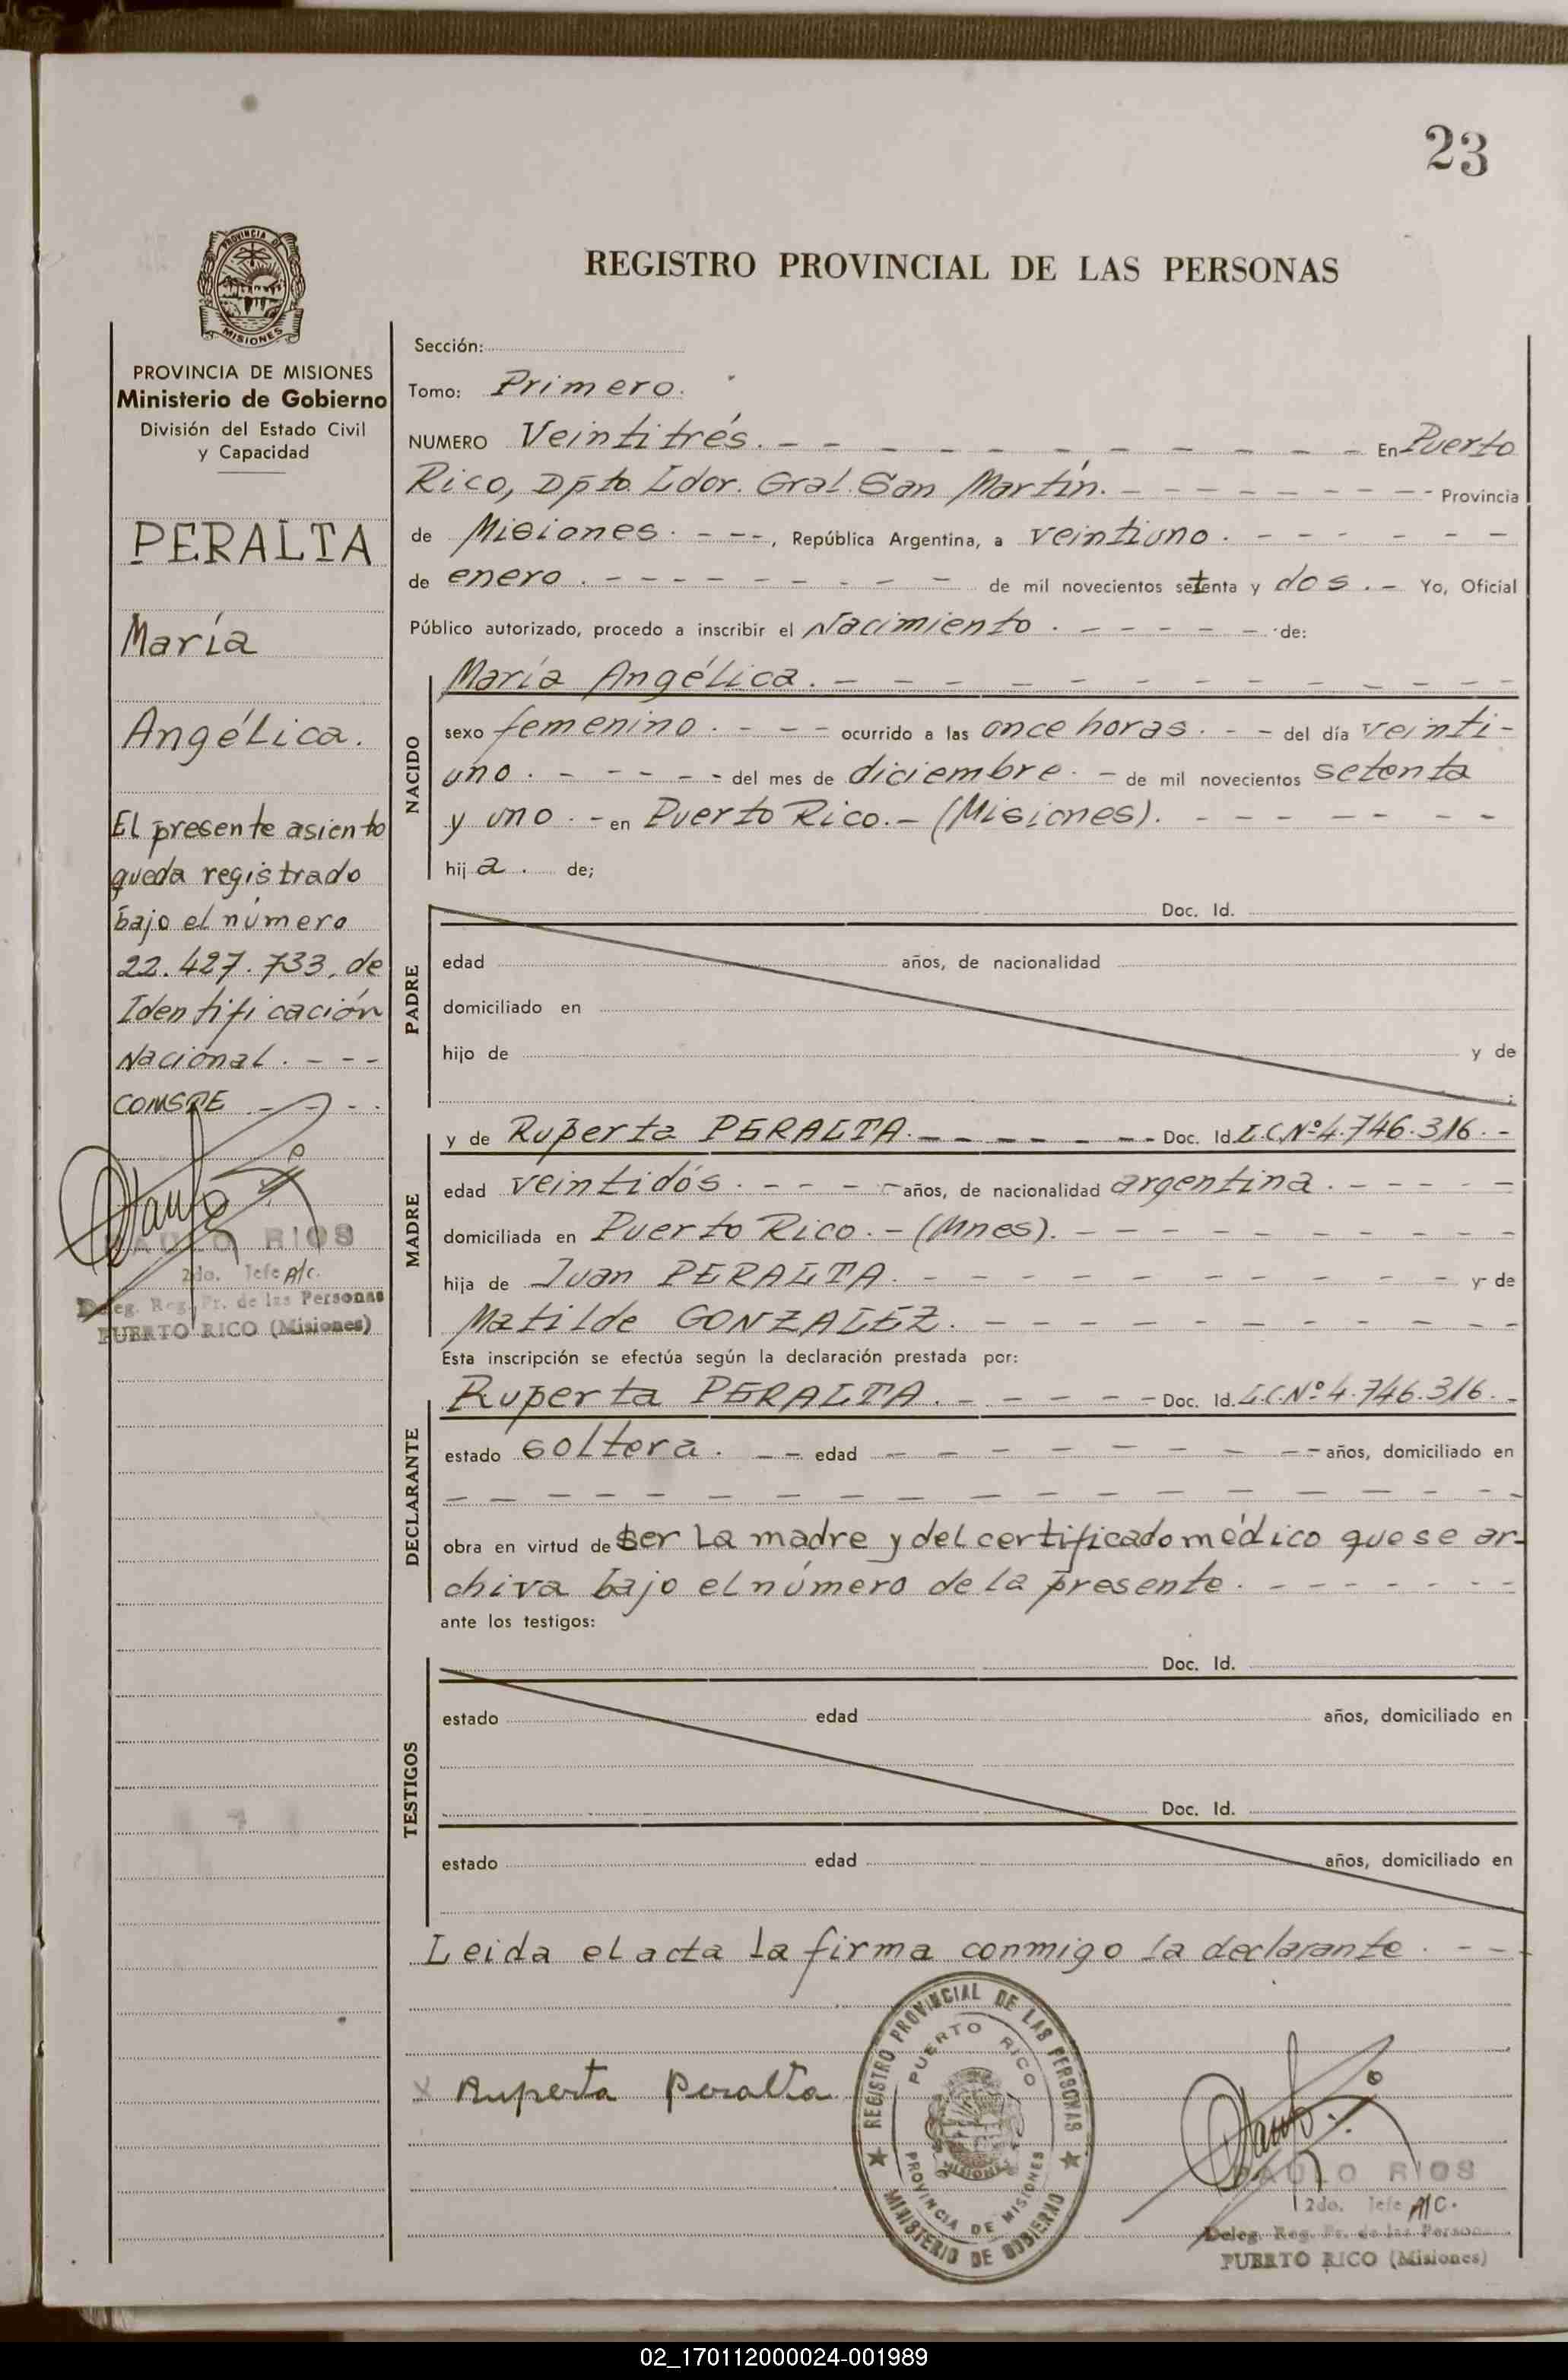 23
PROVINCIA DE
MISIONES
REGISTRO PROVINCIAL DE LAS PERSONAS
PROVINCIA DE MISIONES
Ministerio de Gobierno
División del Estado Civil
y Capacidad
PERALTA
María
Angélica.
El presente asiento
queda registrado
bajo el número
22.427.733, de
Identificación
Nacional. - - -
CONSTE - - -.
PAULO RIOS
2do. Jefe A/C.
Deleg. Reg. Pr. de las Personas
PUERTO RICO (Misiones)
Sección:
Tomo: Primero.
NUMERO Veintitrés. - - - - - - - - - - - En Puerto
Rico, Dpto Ldor. Gral. San Martín. - - - - - - - - Provincia
de Misiones. - - -, República Argentina, a veintiuno. - - - - - -
de enero. - - - - - - - - - de mil novecientos setenta y dos. - Yo, Oficial
Público autorizado, procedo a inscribir el Nacimiento. - - - - - de:
NACIDO
María Angélica. - - - - - - - - - - - -
sexo femenino. - - - ocurrido a las once horas. - - del día veinti-
uno. - - - - - del mes de diciembre. - de mil novecientos setenta
y uno. - en Puerto Rico. - (Misiones). - - - - - - -
hija. de;
PADRE
Doc. Id.
edad años, de nacionalidad
domiciliado en
hijo de y de
MADRE
y de Ruperta PERALTA. - - - - - - Doc. Id. L.C.Nº 4.746.316. -
edad veintidós. - - - - años, de nacionalidad argentina. - - - - -
domiciliada en Puerto Rico. - (Mnes). - - - - - - - - -
hija de Juan PERALTA. - - - - - - - - - - y de
Matilde GONZALEZ. - - - - - - - - - -
Esta inscripción se efectúa según la declaración prestada por:
DECLARANTE
Ruperta PERALTA. - - - - - Doc. Id. L.C.Nº 4.746.316. -
estado soltera. - - edad - - - - - - - - - años, domiciliado en
- - - - - - - - - - - - - - - - - -
obra en virtud de ser la madre y del certificado médico que se ar-
chiva bajo el número de la presente. - - - - - - -
ante los testigos:
TESTIGOS
Doc. Id.
estado edad años, domiciliado en
Doc. Id.
estado edad años, domiciliado en
Leida el acta la firma conmigo la declarante. - -
x Ruperta Peralta
REGISTRO PROVINCIAL DE LAS PERSONAS
PUERTO RICO
MISIONES
PROVINCIA DE MISIONES
MINISTERIO DE GOBIERNO
PAULO RIOS
2do. Jefe A/C.
Deleg. Reg. Pr. de las Persona
PUERTO RICO (Misiones)
02_170112000024-001989